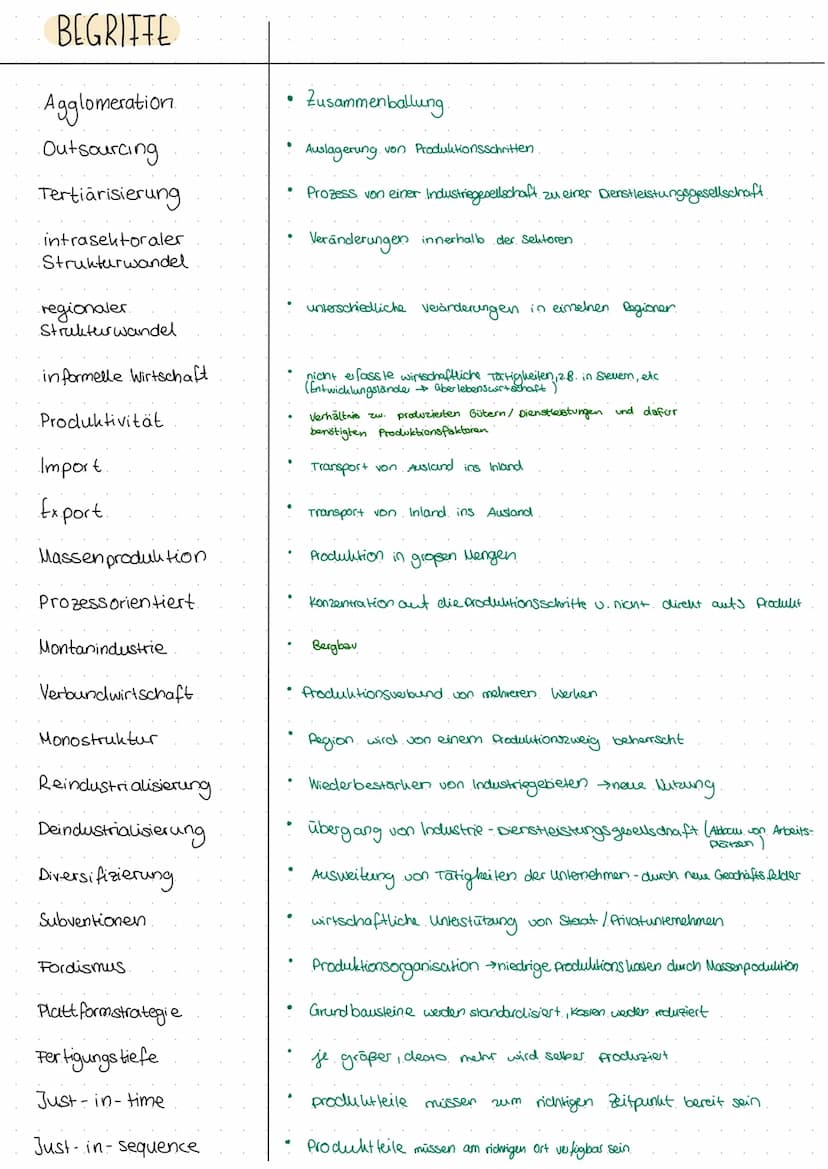 BEGRIFFE
Agglomeration • Zusammenballung
Outsourcing • Auslagerung von Produktionsschritten
Tertiärisierung • Prozess von einer Industriegesellschaft zu einer Dienstleistungsgesellschaft
intrasektoraler • Veränderungen innerhalb der Sektoren
Strukturwandel
regionaler • unterschiedliche Veränderungen in einzelnen Regionen
Strukturwandel
informelle Wirtschaft • nicht erfasste wirtschaftliche Tätigkeiten, z.B. in Steuern, etc
(Entwicklungsländer → Überlebenswirtschaft)
Produktivität • Verhältnis zw. produzierten Gütern / Dienstleistungen und dafür
benötigten Produktionsfaktoren
Import • Transport von Ausland ins Inland
Export • Transport von Inland ins Ausland
Massenproduktion • Produktion in großen Mengen
Prozessorientiert • Konzentration auf die Produktionsschritte u. nicht direkt aufs Produkt
Montanindustrie • Bergbau
Verbundwirtschaft • Produktionsverbund von mehreren Werken
Monostruktur • Region wird von einem Produktionszweig beherrscht
Reindustrialisierung • Wiederbestärken von Industriegebieten → neue Nutzung
Deindustrialisierung • Übergang von Industrie - Dienstleistungsgesellschaft (Abbau von Arbeits-
plätzen)
Diversifizierung • Ausweitung von Tätigkeiten der Unternehmen - durch neue Geschäftsfelder
Subventionen • wirtschaftliche Unterstützung von Staat / Privatunternehmen
Fordismus • Produktionsorganisation → niedrige Produktionskosten durch Massenpoduktion
Plattformstrategie • Grundbausteine werden standardisiert, Kosten werden reduziert
Fertigungstiefe • je größer, desto mehr wird selber produziert
Just-in-time • Produktteile müssen zum richtigen Zeitpunkt bereit sein
Just-in-sequence • Produktteile müssen am richtigen Ort verfügbar sein